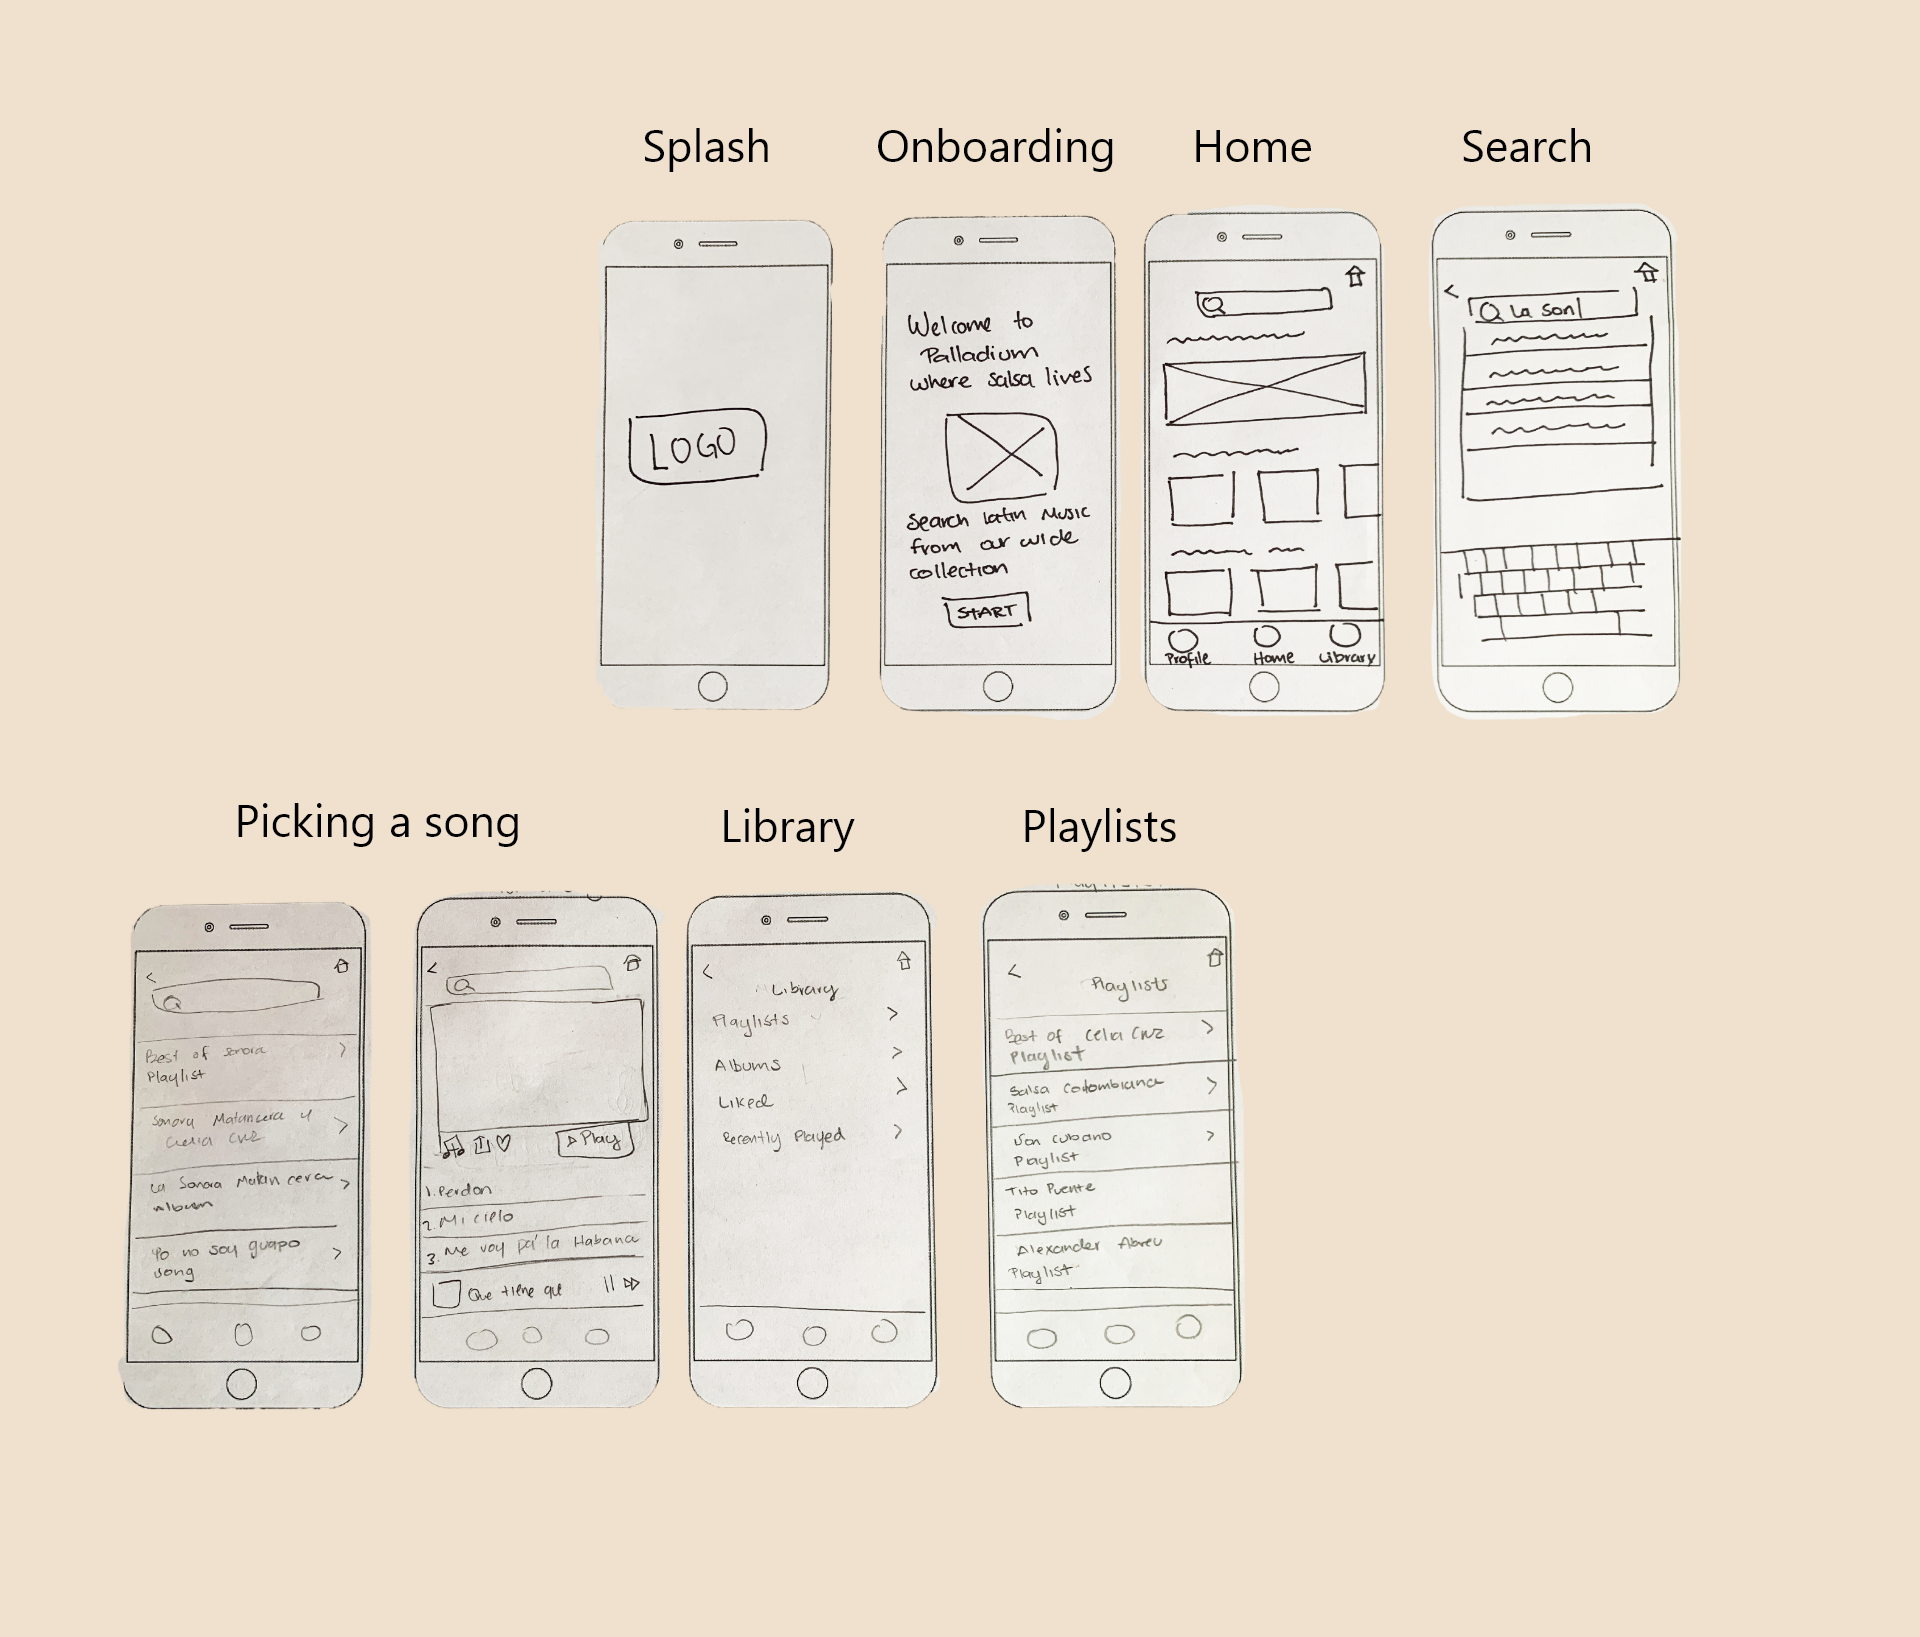 Splash
Onboarding
Home
Search
LOGO
Welcome to
Palladium
where salsa lives
Search latin Music
from our wide
collection
START
Profile
Home
Library
La son
Picking a song
Library
Playlists
Best of sonora
Playlist
Sonora Matancera y
Celia Cruz
La Sonora Matancera
album
Yo no soy guapo
song
Play
1. Perdon
2. Mi cielo
3. Me voy pa' la Habana
Que tiene que
Library
Playlists
Albums
Liked
Recently Played
Playlists
Best of Celia Cruz
Playlist
Salsa Colombiana
Playlist
Son cubano
Playlist
Tito Puente
Playlist
Alexander Abreu
Playlist